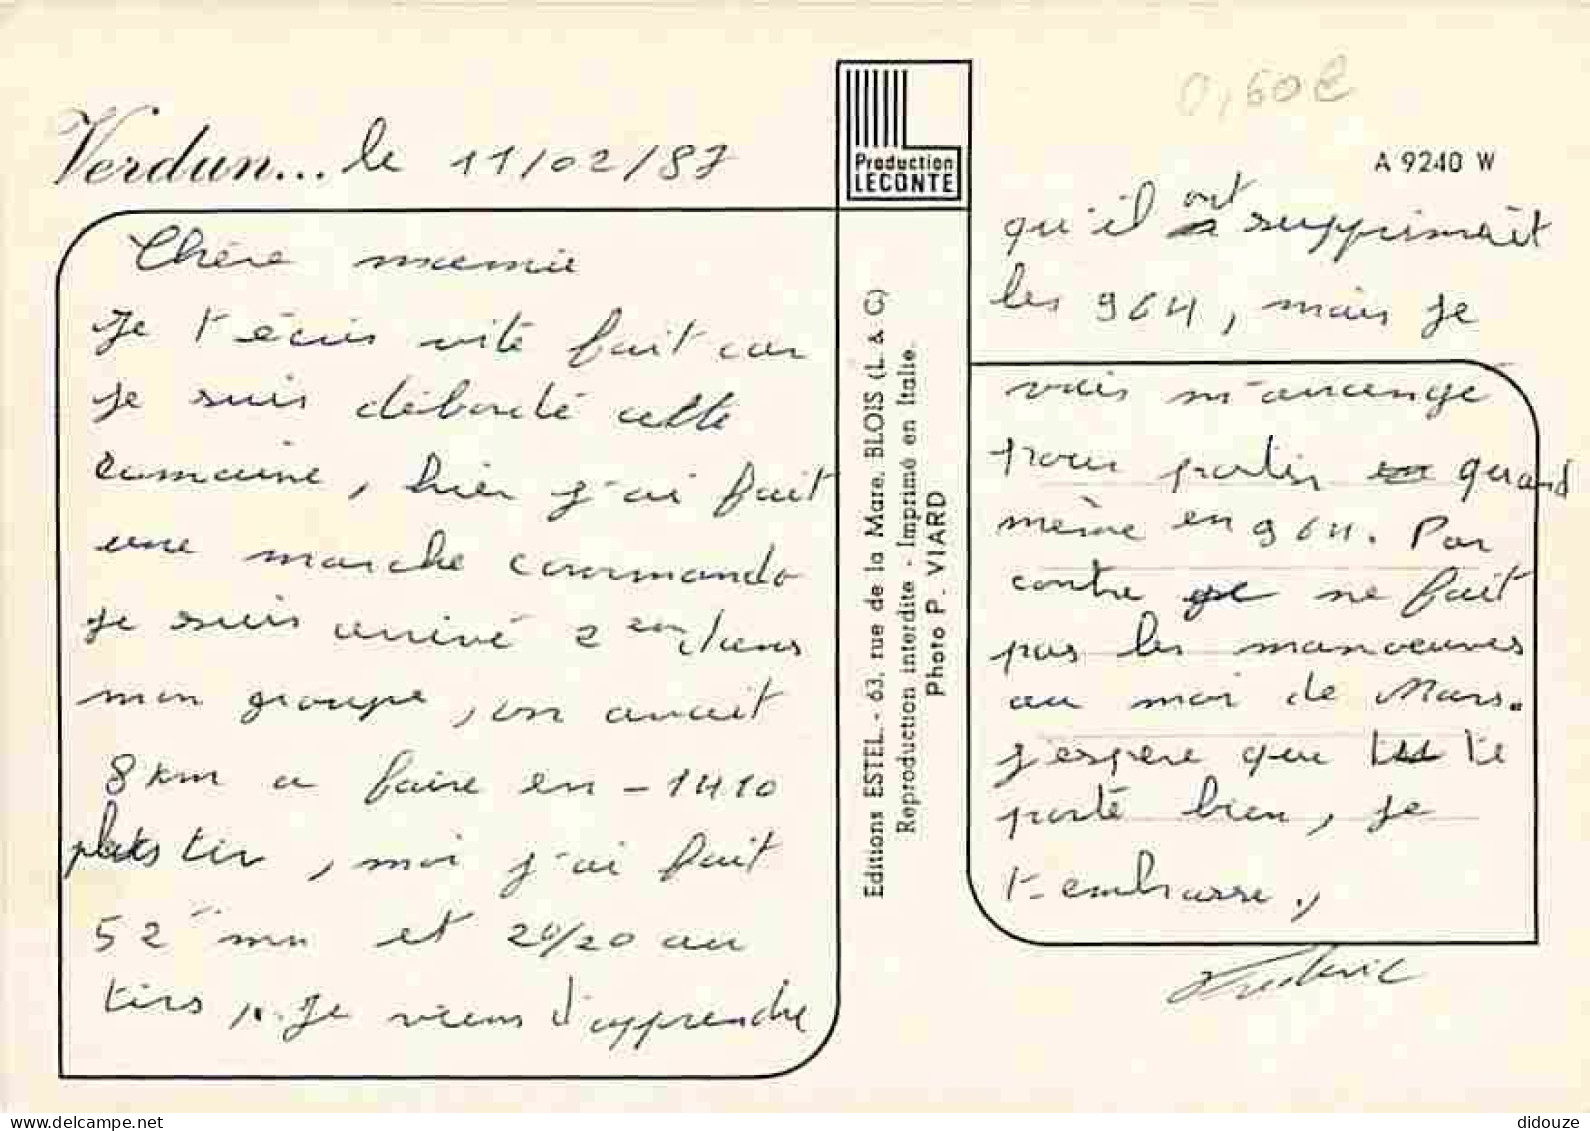 Verdun... le 11/02/87
Chère mamie
Je t'écris vite fait car
je suis débordé cette
semaine, hier j'ai fait
une marche commando
je suis arrivé 2em dans
mon groupe, on avait
8 km a faire en - 1H10
plus tir, moi j'ai fait
52" mn et 20/20 au
tirs, je viens d'apprendre
Production
LECONTE
Editions ESTEL. - 63, rue de la Mare, BLOIS (L. & C.)
Reproduction interdite - Imprimé en Italie.
Photo P. VIARD
0,60€
A 9240 W
qu'il ont supprimait
les 964, mais je
vais m'arrengé
pour partir quand
même en 964. Par
contre je ne fait
pas les manoeuvres
au moi de Mars.
j'espère que te
porte bien, je
t'embrasse.,
Frederic
delcampe.net
didouze